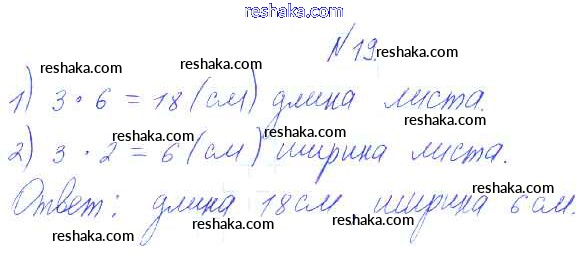 reshaka.com
№ 19.
reshaka.com
reshaka.com
reshaka.com
1) 3 · 6 = 18 (см) длина листа.
reshaka.com
reshaka.com
reshaka.com
2) 3 · 2 = 6 (см) ширина листа.
reshaka.com
reshaka.com
reshaka.com
Ответ: длина 18 см ширина 6 см.
reshaka.com
reshaka.com